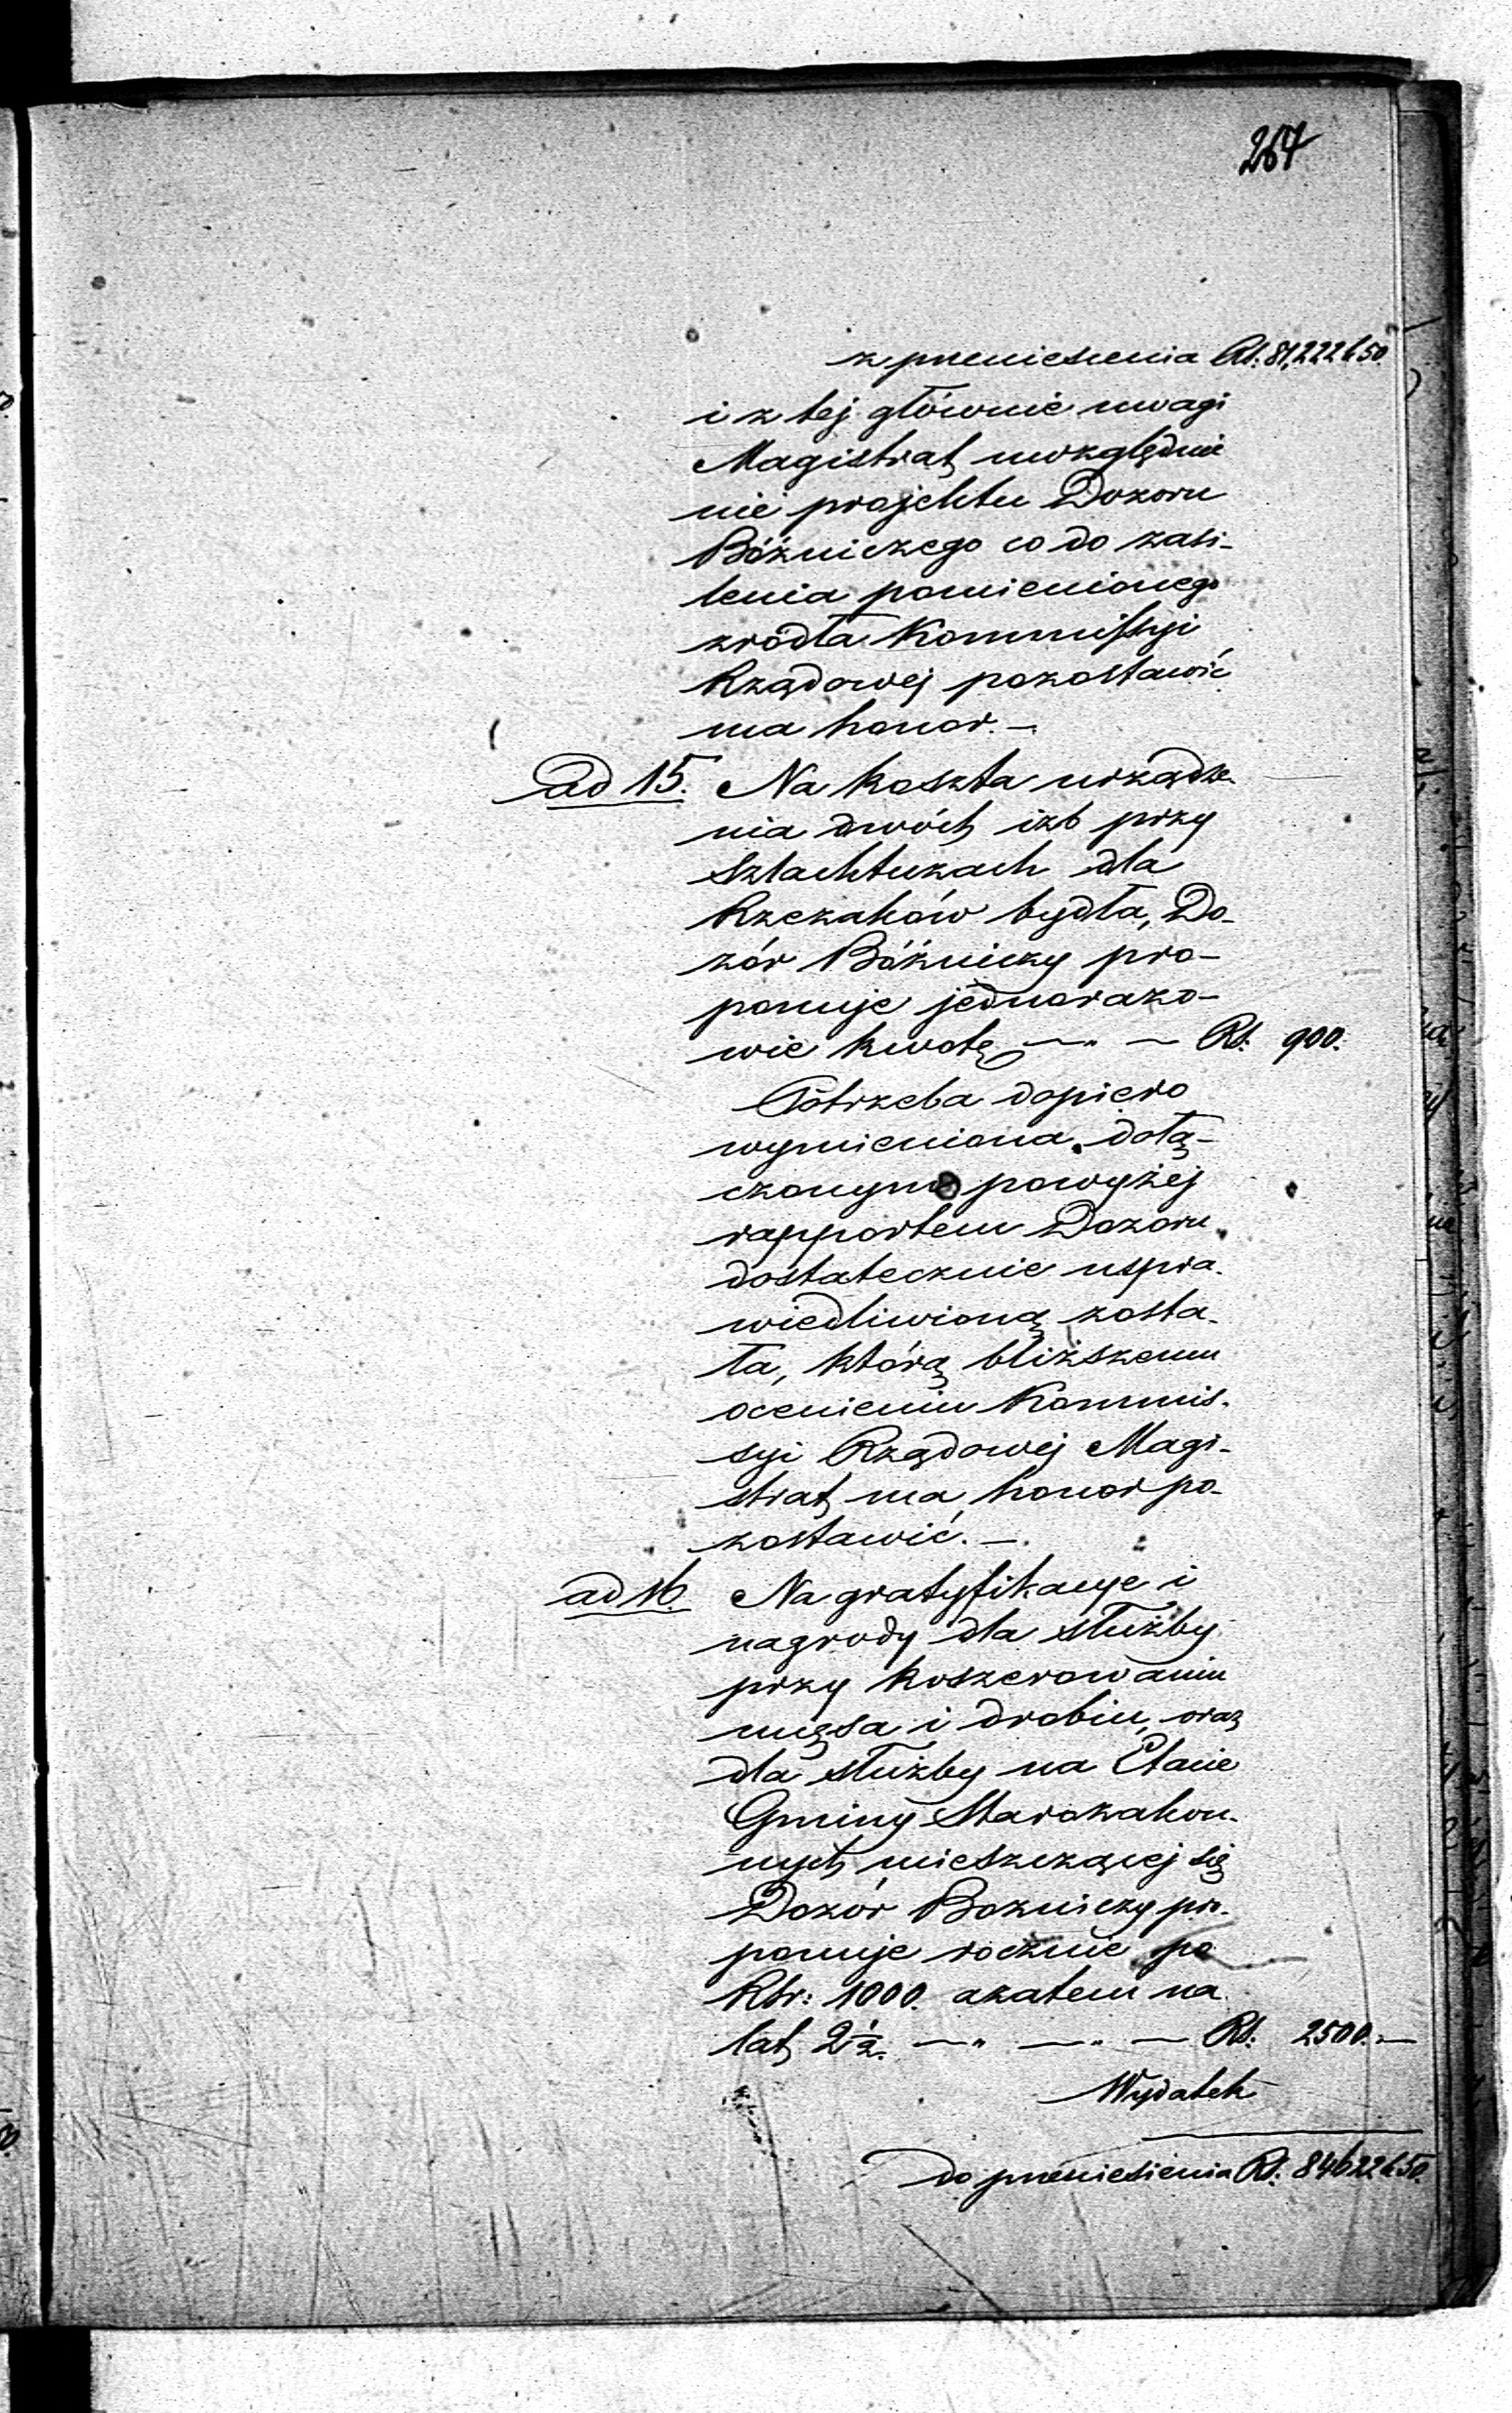 267
z przeniesienia Rs: 81,222 k 50.
i z tej głównie uwagi
Magistrat uwzględnie
nie projektu Dozoru
Bóźniczego co do zasi-
lenia pomienionego
zródła Kommissyi
Rządowej pozostawić
ma honor. —
Ad 15. Na koszta urządze-
nia dwóch izb przy
szlachtuzach dla
Rzezaków bydła, Do-
zór Bóźniczy pro-
ponuje jednorazo-
wie kwotę — „ — Rs: 900.
Potrzeba dopiero
wymieniona dołą-
czonym powyżej
rapportem Dozoru
dostatecznie uspra-
wiedliwioną zosta-
ła, którą bliższemu
ocenieniu Kommis-
syi Rządowej Magi-
strat ma honor po-
zostawić. —.
ad 16. Na gratyfikacye i
nagrody dla służby
przy koszerowaniu
mięsa i drobiu, oraz
dla służby na Etacie
Gminy Starozakon-
nych mieszczącej się
Dozór Bozniczy pro-
ponuje rocznie po
Rsr: 1000. azatem na
lat 2½. — „ — „ — Rs: 2500. —
Wydatek
do przeniesienia Rs: 84622 k 50.